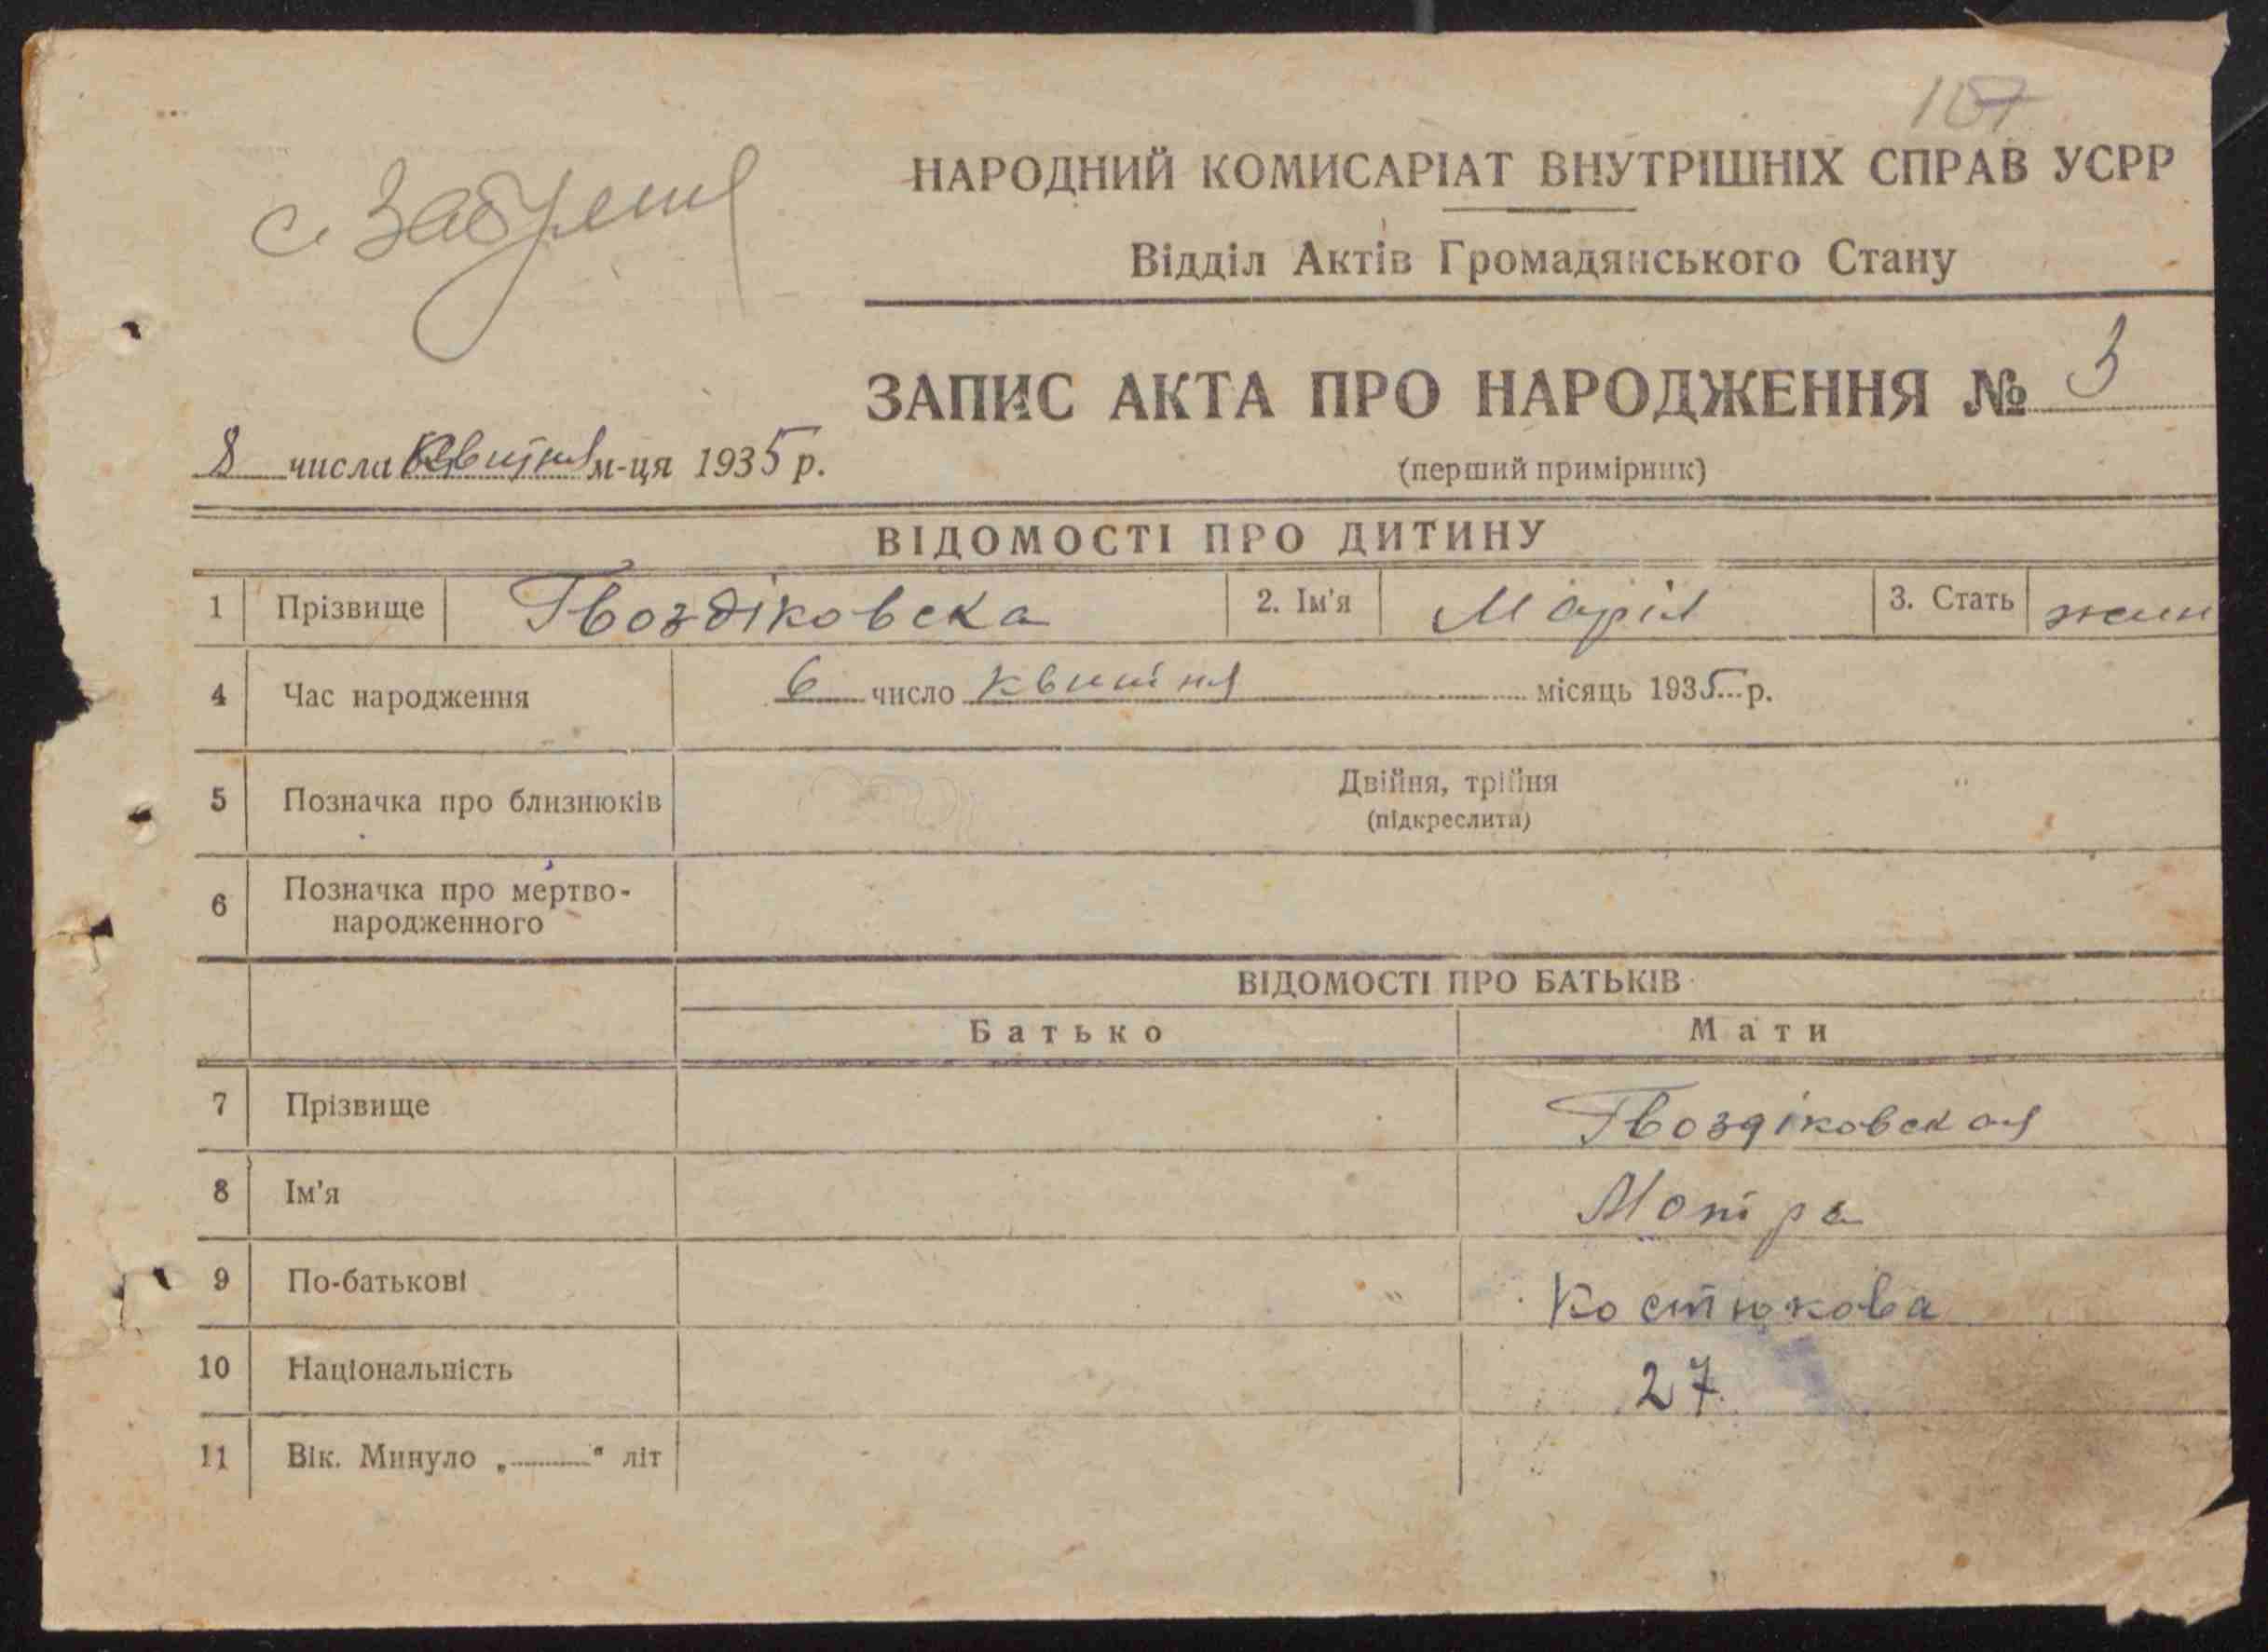 107
с. Забуяня
НАРОДНИЙ КОМИСАРІАТ ВНУТРІШНІХ СПРАВ УСРР
Відділ Актів Громадянського Стану
ЗАПИС АКТА ПРО НАРОДЖЕННЯ № 3
8 числа квітня м-ця 1935 р.
(перший примірник)
ВІДОМОСТІ ПРО ДИТИНУ
1 Прізвище Гвоздіковска 2. Ім'я Марія 3. Стать жин
4 Час народження 6 число квитня місяць 1935 р.
5 Позначка про близнюків Двійня, трійня
(підкреслити)
6 Позначка про мертво-
народженного
ВІДОМОСТІ ПРО БАТЬКІВ
Батько Мати
7 Прізвище Гвоздіковская
8 Ім'я Мотра
9 По-батькові Костюкова
10 Національність 27
11 Вік. Минуло „ “ літ